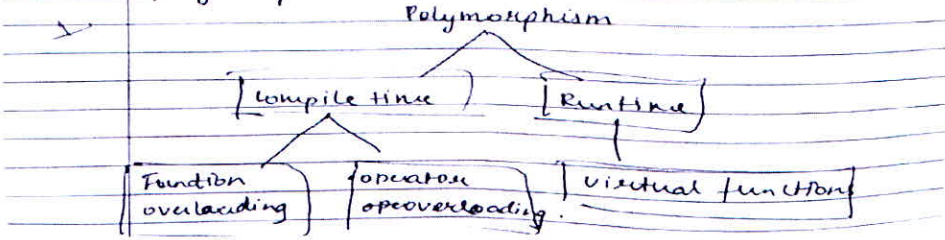 Polymorphism
Compile time
Runtime
Function
overloading
operator
opeoverloading.
virtual function